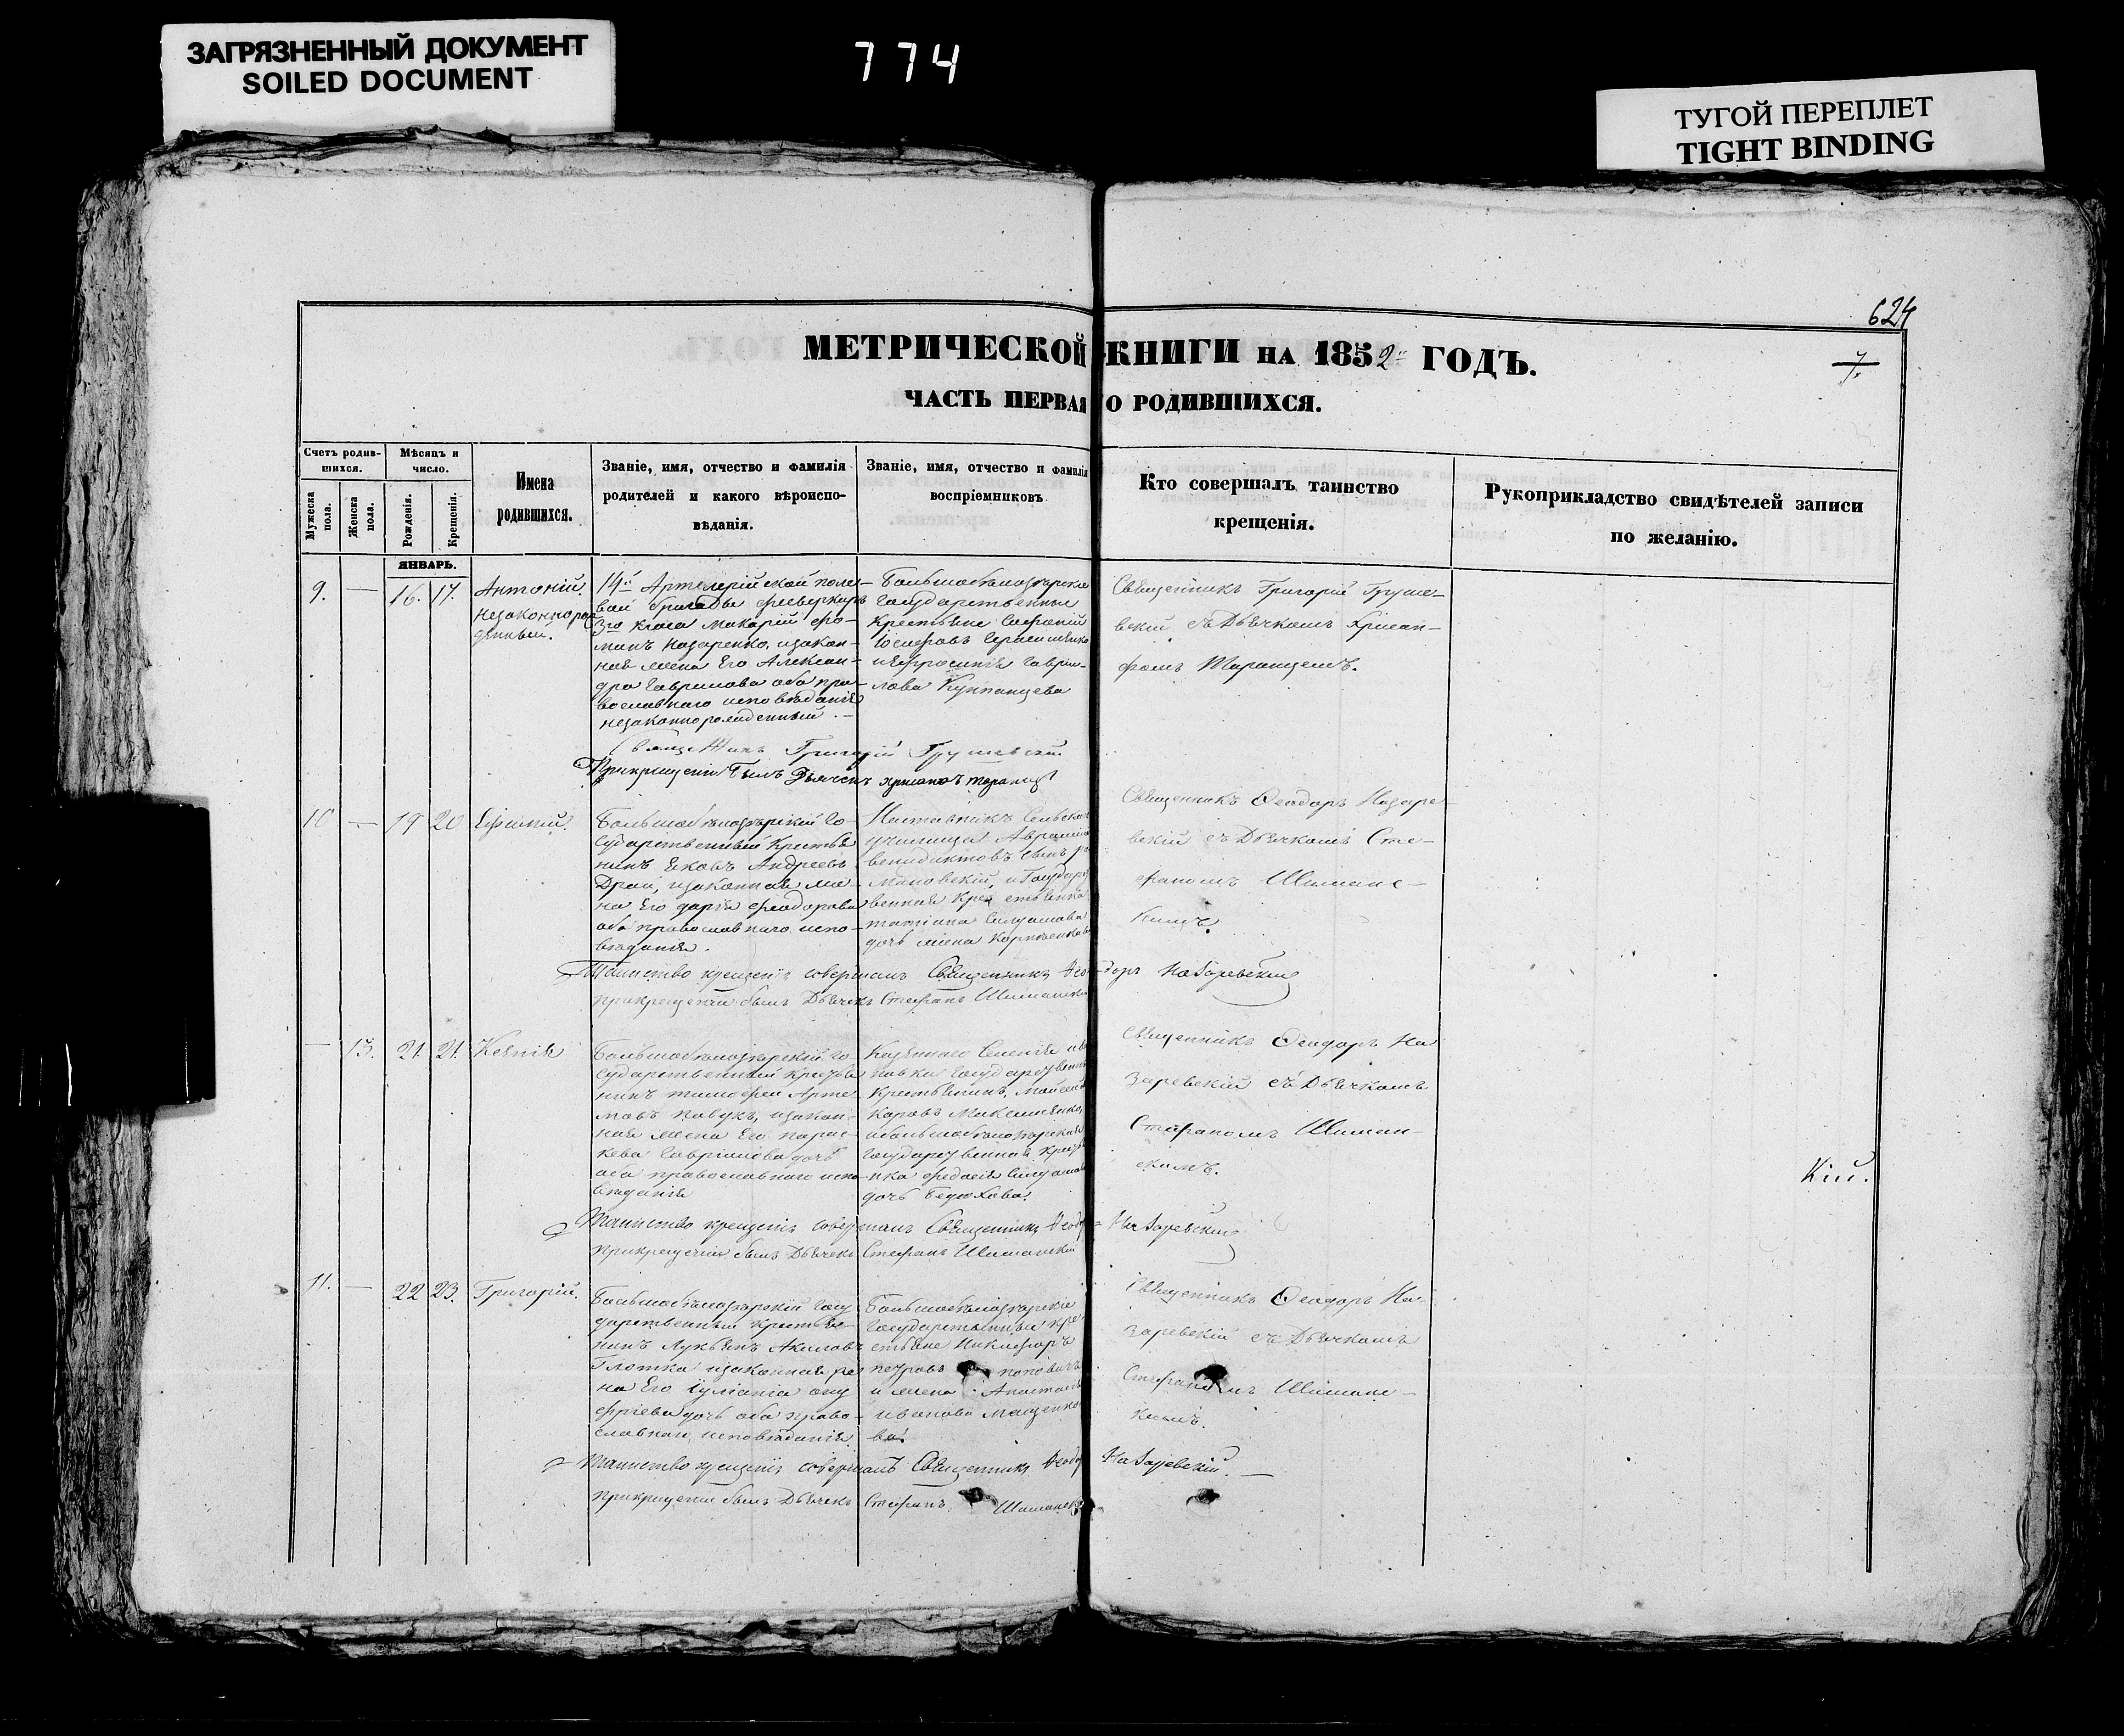 ЗАГРЯЗНЕННЫЙ ДОКУМЕНТ
SOILED DOCUMENT
774
ТУГОЙ ПЕРЕПЛЕТ
TIGHT BINDING
624
МЕТРИЧЕСКОЙ КНИГИ НА 1852 ГОДЪ.
7.
ЧАСТЬ ПЕРВАЯ О РОДИВШИХСЯ.
Счетъ родив-
шихся.
Мужеска
пола.
Женска
пола.
Мѣсяцъ и
число.
Рожденія.
Крещенія.
Имена
родившихся.
Званіе, имя, отчество и фамилія
родителей и какого вѣроиспо-
вѣданія.
Званіе, имя, отчество и фамилія
воспріемниковъ
Кто совершалъ таинство
крещенія.
Рукоприкладство свидѣтелей записи
по желанію.
ЯНВАРЬ.
9. — 16. 17.
Антоній.
незаконнорож
денный.
14й Артилерійской поле-
вой бригады феверкиръ
3го класа Макарій Фо-
минъ Назаренко, изакон-
ная жена Его Алексан-
дра Гаврилова оба пра-
вославнаго исповѣданія
незаконнорожденный. —
Государственные
крестьяне
Іосифовъ Герасименко
и Ефросинія Гаври-
лова
Священникъ Григорій Груше-
вскій съ Дьячкомъ Хрисан-
фомъ Таранцемъ.
Священникъ Григорій Грушевскій
При крещеніи былъ Дьячекъ
10 — 19 20
Ефимій.
Го-
сударственный Крестья
нинъ Яковъ Андреевъ
Драй, изаконная же-
на Его Дарія Феодорова
оба православнаго испо-
вѣданія.
Наставникъ Сельскаго
училища
венидиктовъ сынъ
мановскій, и Государ
венная Крестьянка
татіана
дочь жена
Священникъ Феодоръ Назаре-
вскій съ Дьячкомъ Сте-
фаномъ Шиманс-
кимъ.
Таинство крещенія совершалъ Священникъ Феодоръ Назаревскій
При крещеніи былъ Дьячекъ Стефанъ Шиманскій
— 13. 21. 21.
Ксенія
Го-
сударственный Крестья
нинъ тимофей Арте-
мовъ Павукъ, изакон-
ная жена Его парас-
кева Гавріилова дочь
оба православнаго испо-
вѣданія
Казеннаго Селенія
Государственный
Крестьянинъ, Моисей
Государственная Крестьян
ка Феодосія
дочь
Священникъ Феодоръ На
заревскій съ Дьячкомъ
Стефаномъ Шиман-
скимъ.
Кій.
Таинство крещенія совершалъ Священникъ Феодоръ Назаревскій
При крещеніи былъ Дьячекъ Стефанъ Шиманскій
11. — 22 23.
Григорій.
Госу
дарственный крестья-
нинъ Лукьянъ Акимовъ
Глотка изаконная же
на Его Іуліанія Ону
фріева дочь оба право-
славнаго исповѣданія.
Государственные кре-
стьяне Никифоръ
петровъ поповичъ
и жена Анастасія
иванова
ва.
Священникъ Феодоръ На-
заревскій съ Дьячкомъ
Стефаномъ Шиманс-
кимъ.
Таинство крещенія совершалъ Священникъ Феодоръ Назаревскій. —
При крещеніи былъ Дьячекъ Стефанъ Шиманскій